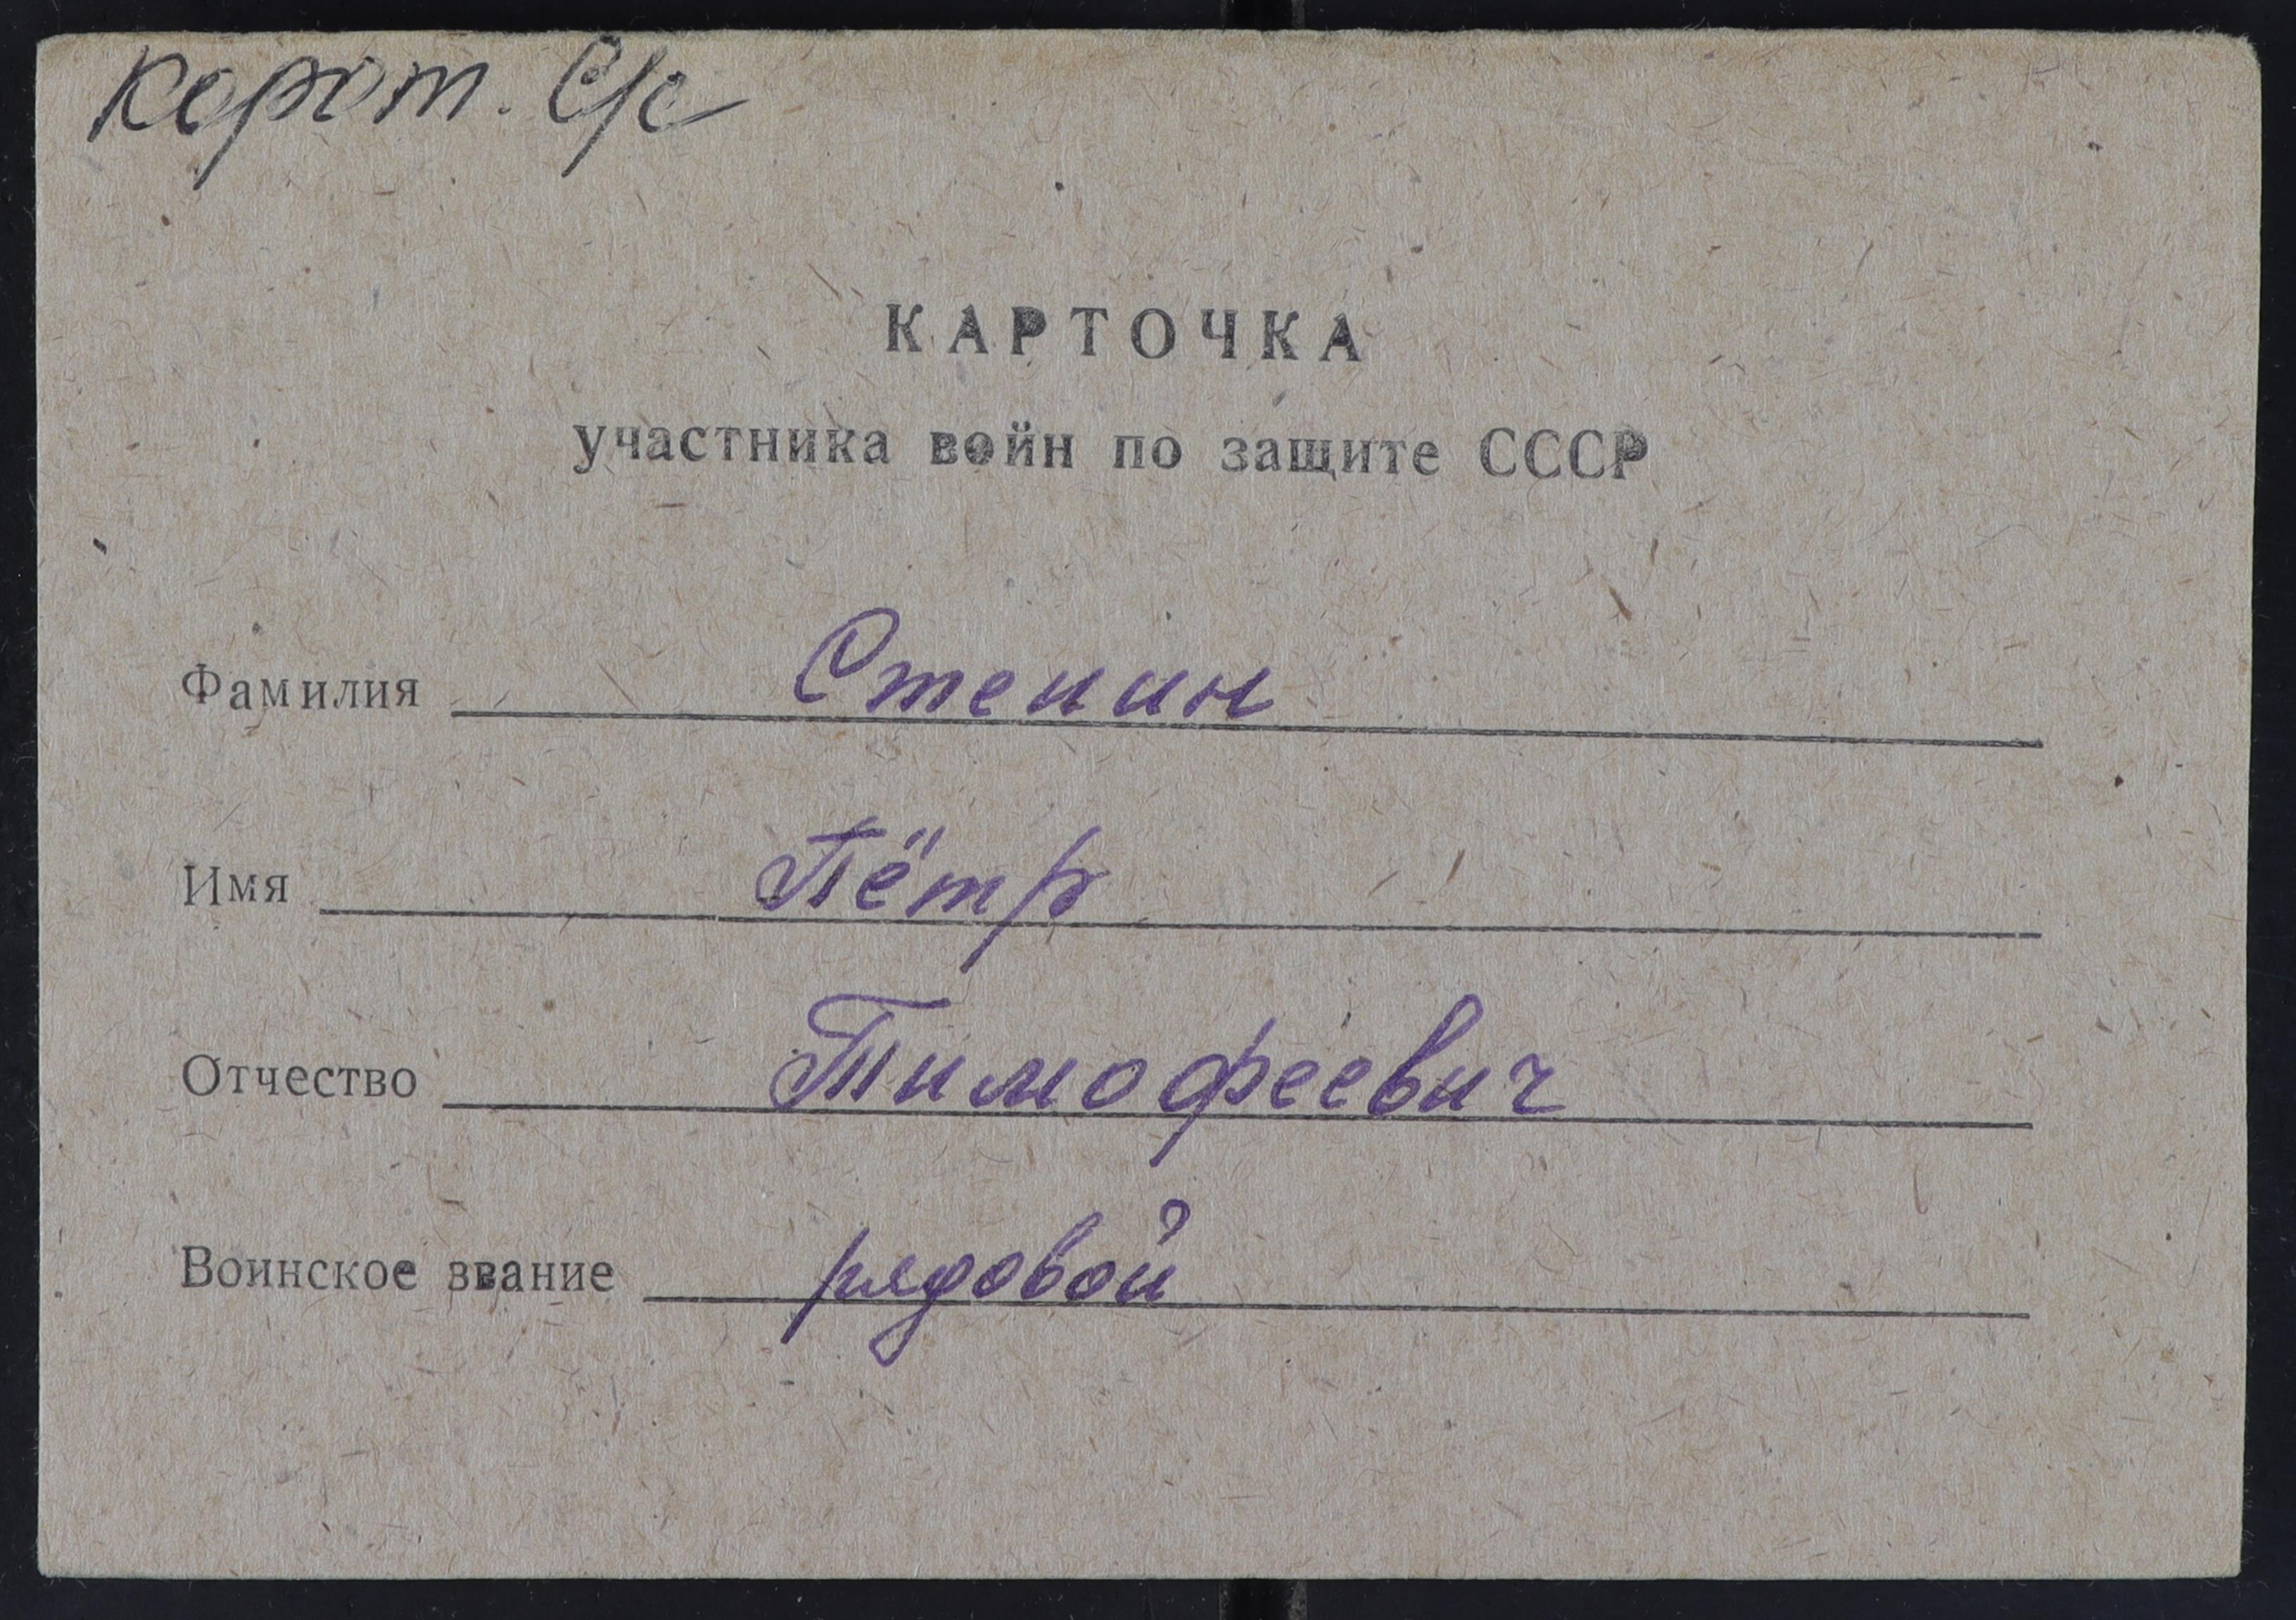 Корот. с/с
КАРТОЧКА
участника войн по защите СССР
Фамилия Степин
Имя Пётр
Отчество Тимофеевич
Воинское звание рядовой